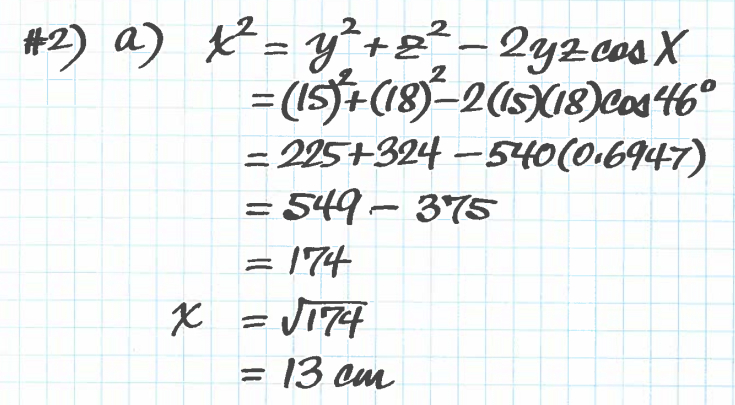 #2) a) x² = y² + z² - 2yz cos X
= (15)² + (18)² - 2(15)(18) cos 46°
= 225 + 324 - 540(0.6947)
= 549 - 375
= 174
x = √174
= 13 cm